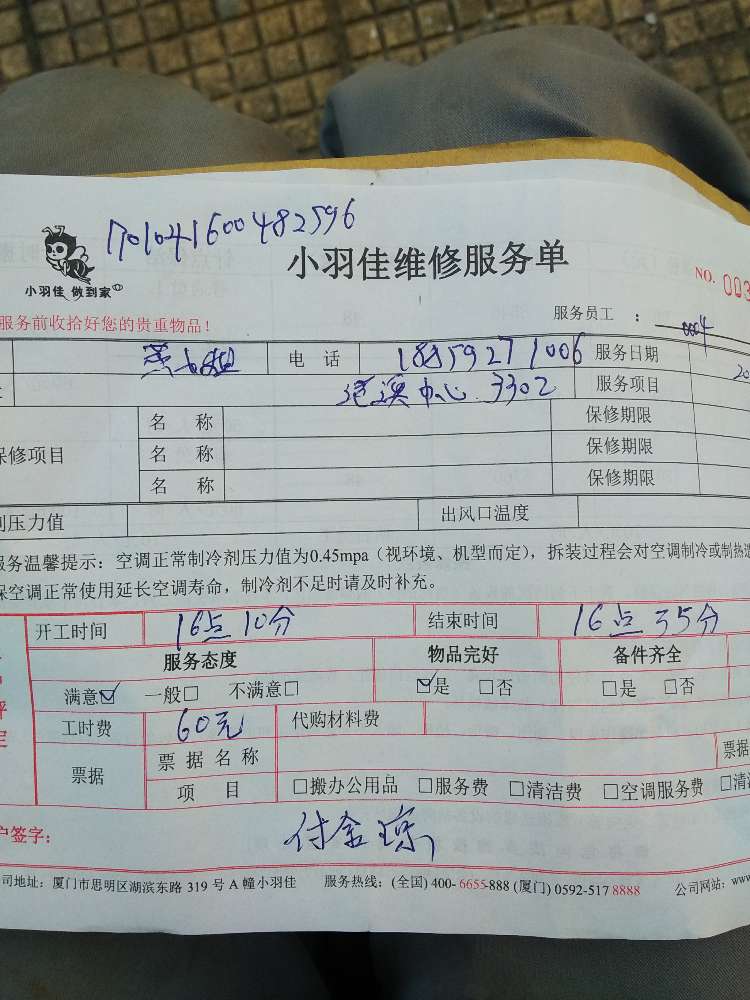 17010416004 82596
小羽佳维修服务单
NO. 003
小羽佳 做到家
服务前收拾好您的贵重物品!
服务员工 : 0004
电 话 18859271006 服务日期 20
中心 3302 服务项目
保修项目 名 称 保修期限
名 称 保修期限
名 称 保修期限
剂压力值 出风口温度
服务温馨提示:空调正常制冷剂压力值为0.45mpa(视环境、机型而定),拆装过程会对空调制冷或制热
保空调正常使用延长空调寿命,制冷剂不足时请及时补充。
开工时间 16点10分 结束时间 16点35分
服务态度 物品完好 备件齐全
满意☑ 一般□ 不满意□ ☑是 □否 □是 □否
评定
工时费 60元 代购材料费
票据 票据名称 票据
项 目 □搬办公用品 □服务费 □清洁费 □空调服务费 □清
户签字: 付金琼
司地址:厦门市思明区湖滨东路 319 号 A 幢小羽佳 服务热线:(全国) 400-6655-888 (厦门) 0592-517 8888 公司网站:www